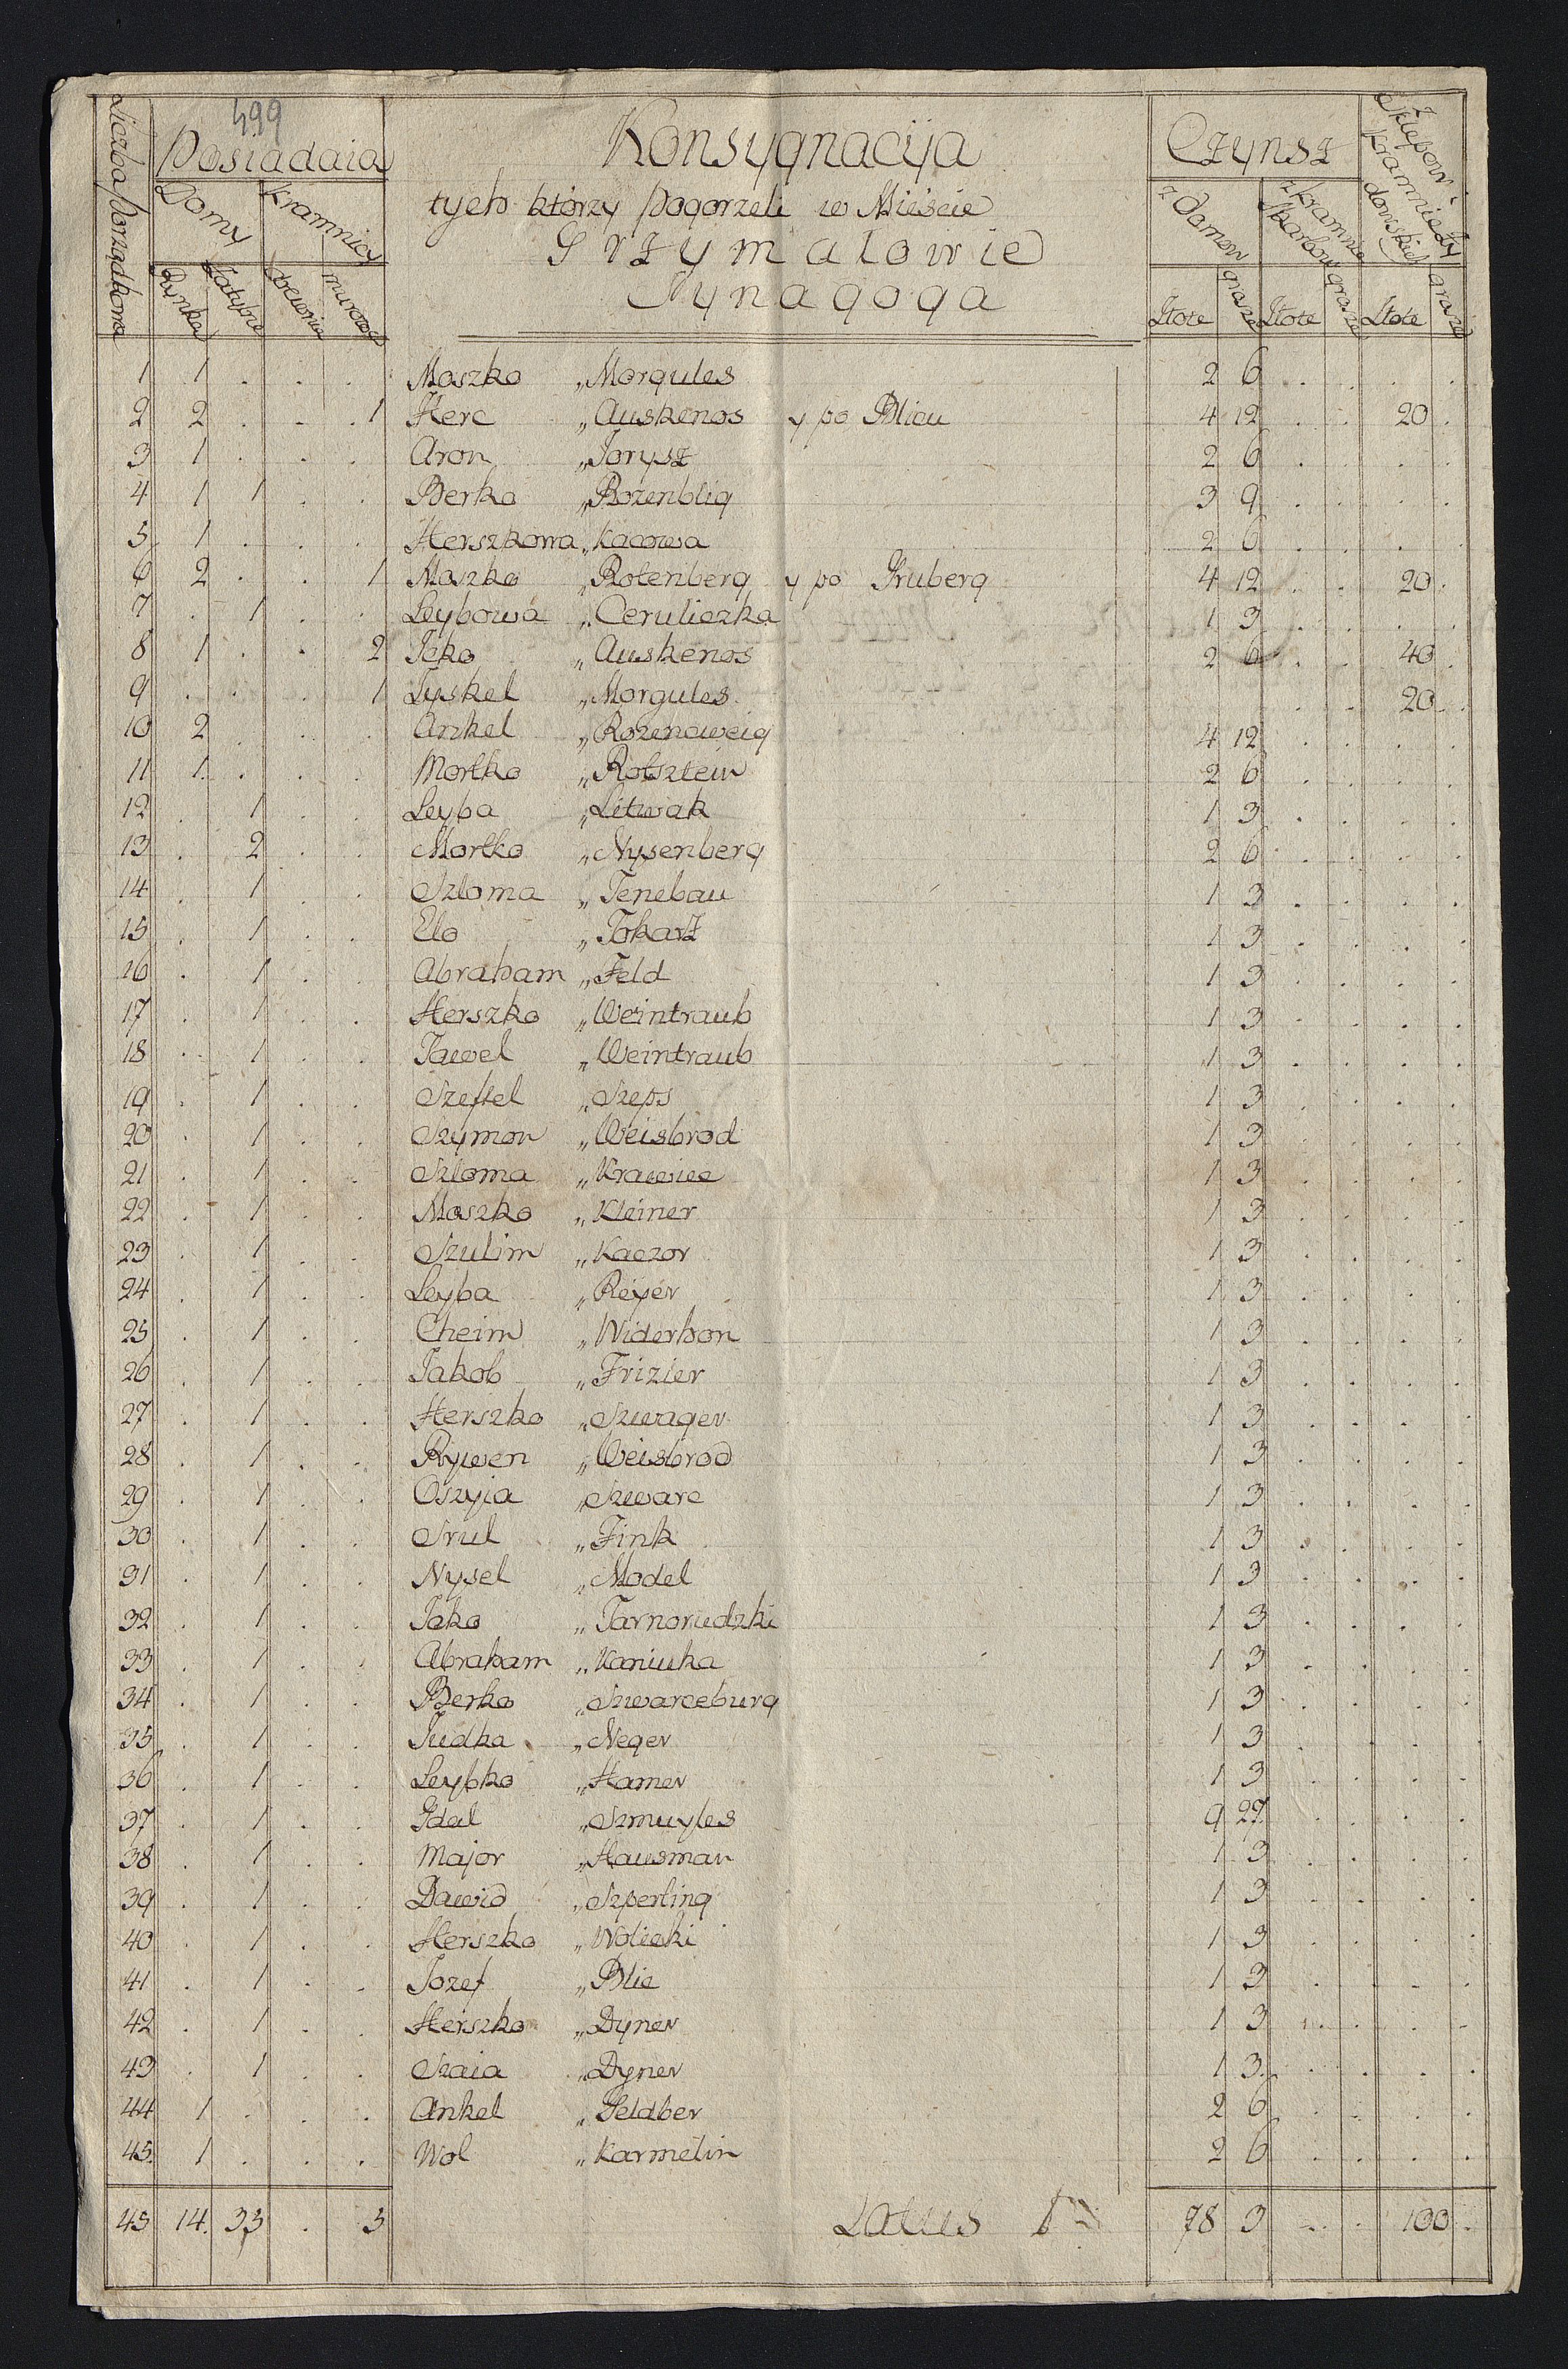 499
Liczba Porządkowa
Posiadaia
Konsygnacyia
Czynsz
z Sklepow Kramnic Żydowskich
Domy
Kramnicy
tych ktorzy Pogorzeli w Mieście
z Domow
z Kramnic Skarbow
Grzymałowie
Synagoga
Rynku
Zatyłne
drewnia
murowa
Złote grosze Złote grosze Złote grosze
1 1 . . . Moszko „Morgules 2 6 . . . .
2 2 . . 1 Herc „Auskenos y po Blicu 4 12 . . 20 .
3 1 . . . Aron „Jorysz 2 6 . . . .
4 1 1 . . Berko „Rozenblig 3 9 . . . .
5 1 . . . Herszkowa „Kacowa 2 6 . . . .
6 2 . . 1 Moszko „Rotenberg y po Gruberg 4 12 . . 20 .
7 . 1 . . Leybowa „Ceruliczka 1 3 . . . .
8 1 . . 2 Icko „Auskenos 2 6 . . 40 .
9 . . . 1 Zyskel „Morgules . . 20 .
10 2 . . . Ankel „Rozencweig 4 12 . . . .
11 1 . . . Mortko „Rotsztein 2 6 . . . .
12 . 1 . . Leyba „Litwak 1 3 . . . .
13 . 2 . . Mortko „Nysenberg 2 6 . . . .
14 . 1 . . Szloma „Tenebau 1 3 . . . .
15 . 1 . . Elo „Tokarz 1 3 . . . .
16 . 1 . . Abraham „Feld 1 3 . . . .
17 . 1 . . Herszko „Weintraub 1 3 . . . .
18 . 1 . . Tawel „Weintraub 1 3 . . . .
19 . 1 . . Szeftel „Szeps 1 3 . . . .
20 . 1 . . Szymon „Weisbrod 1 3 . . . .
21 . 1 . . Szloma „Krawiec 1 3 . . . .
22 . 1 . . Moszko „Kleiner 1 3 . . . .
23 . 1 . . Szulim „Kaczor 1 3 . . . .
24 . 1 . . Leyba „Reyer 1 3 . . . .
25 . 1 . . Cheim „Widerhon 1 3 . . . .
26 . 1 . . Jakob „Frizier 1 3 . . . .
27 . 1 . . Herszko „Szwager 1 3 . . . .
28 . 1 . . Rywen „Weisbrod 1 3 . . . .
29 . 1 . . Oszyia „Szwarc 1 3 . . . .
30 . 1 . . Srul „Fink 1 3 . . . .
31 . 1 . . Nysel „Model 1 3 . . . .
32 . 1 . . Icko „Tarnorudzki 1 3 . . . .
33 . 1 . . Abraham „Kaniuka 1 3 . . . .
34 . 1 . . Berko „Szwarceburg 1 3 . . . .
35 . 1 . . Judka „Neger 1 3 . . . .
36 . 1 . . Leybko „Hamer 1 3 . . . .
37 . 1 . . Idel „Szmuyles 9 27 . . . .
38 . 1 . . Major „Hausman 1 3 . . . .
39 . 1 . . Dawid „Szperling 1 3 . . . .
40 . 1 . . Herszko „Wolicki 1 3 . . . .
41 . 1 . . Jozef „Blic 1 3 . . . .
42 . 1 . . Herszko „Dyner 1 3 . . . .
43 . 1 . . Szaia „Dyner 1 3 . . . .
44 1 . . . Ankel „Geldber 2 6 . . . .
45 1 . . . Wol „Karmelin 2 6 . . . .
45 14 33 . 3 Latus 78 3 . . 100 .